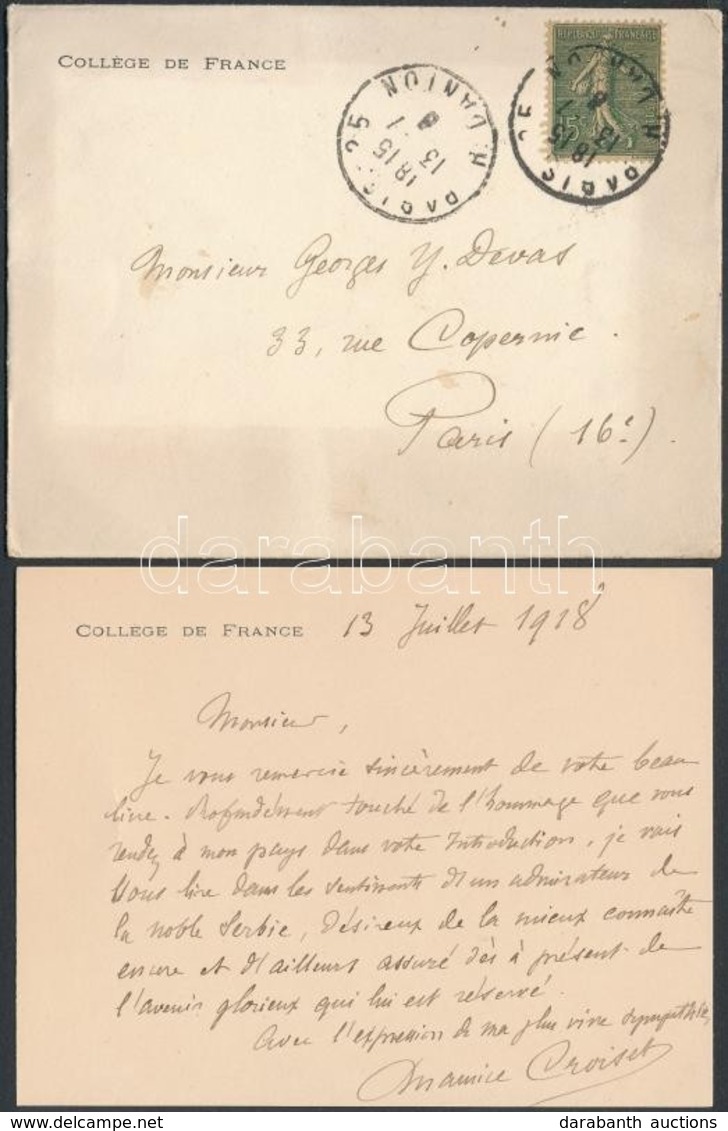 COLLÈGE DE FRANCE
RÉPUBLIQUE FRANÇAISE
15c
PARIS 25
R. DANTON
18 15
13 - 7
Monsieur Georges Y. Devas
33, rue Copernic.
Paris (16e).
darabanth
COLLEGE DE FRANCE 13 Juillet 1918
Monsieur,
Je vous remercie sincèrement de votre beau
livre. Profondément touché de l'hommage que vous
rendez à mon pays dans votre Introduction, je vais
vous lire dans les sentiments d'un admirateur de
la noble Serbie, désireux de la mieux connaître
encore et d'ailleurs assuré dès à présent de
l'avenir glorieux qui lui est réservé.
Avec l'expression de ma plus vive sympathie,
Maurice Croiset
darabanth auctions